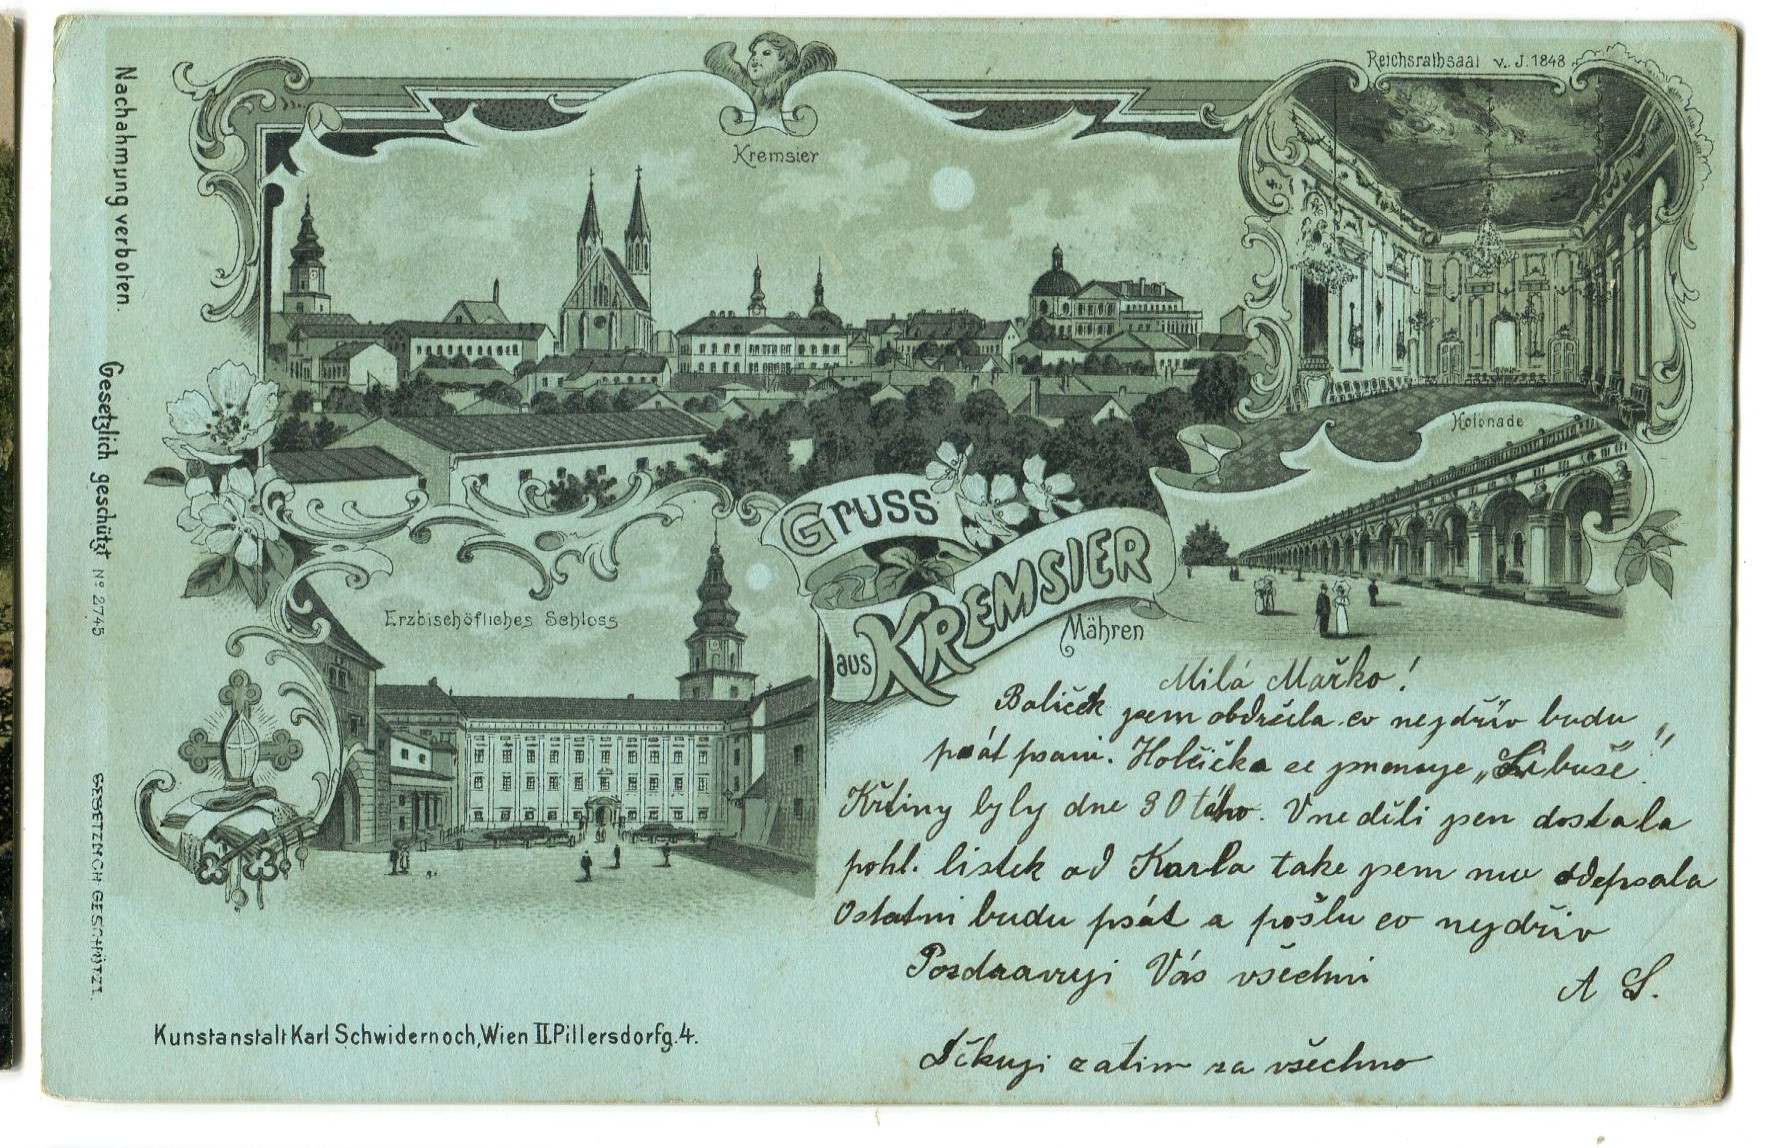 Nachahmung verboten.
Gesetzlich geschützt No 2745
GESETZLICH GESCHÜTZT.
Kremsier
Reichsrathsaal v. J. 1848
Kolonade
Gruss
aus KREMSIER
Mähren
Erzbischöfliches Schloss
Milá Mařko!
Balíček jsem obdržela co nejdřív budu
psát psani. Holčička se jmenuje „Libuše".
Křtiny byly dne 30 tého. V neděli jsem dostala
pohl. listek od Karla take jsem mu odepsala
Ostatni budu psát a pošlu co nejdřiv
Pozdravuji Vás všechni
A S.
Děkuji zatim za všechno
Kunstanstalt Karl Schwidernoch, Wien II. Pillersdorfg. 4.